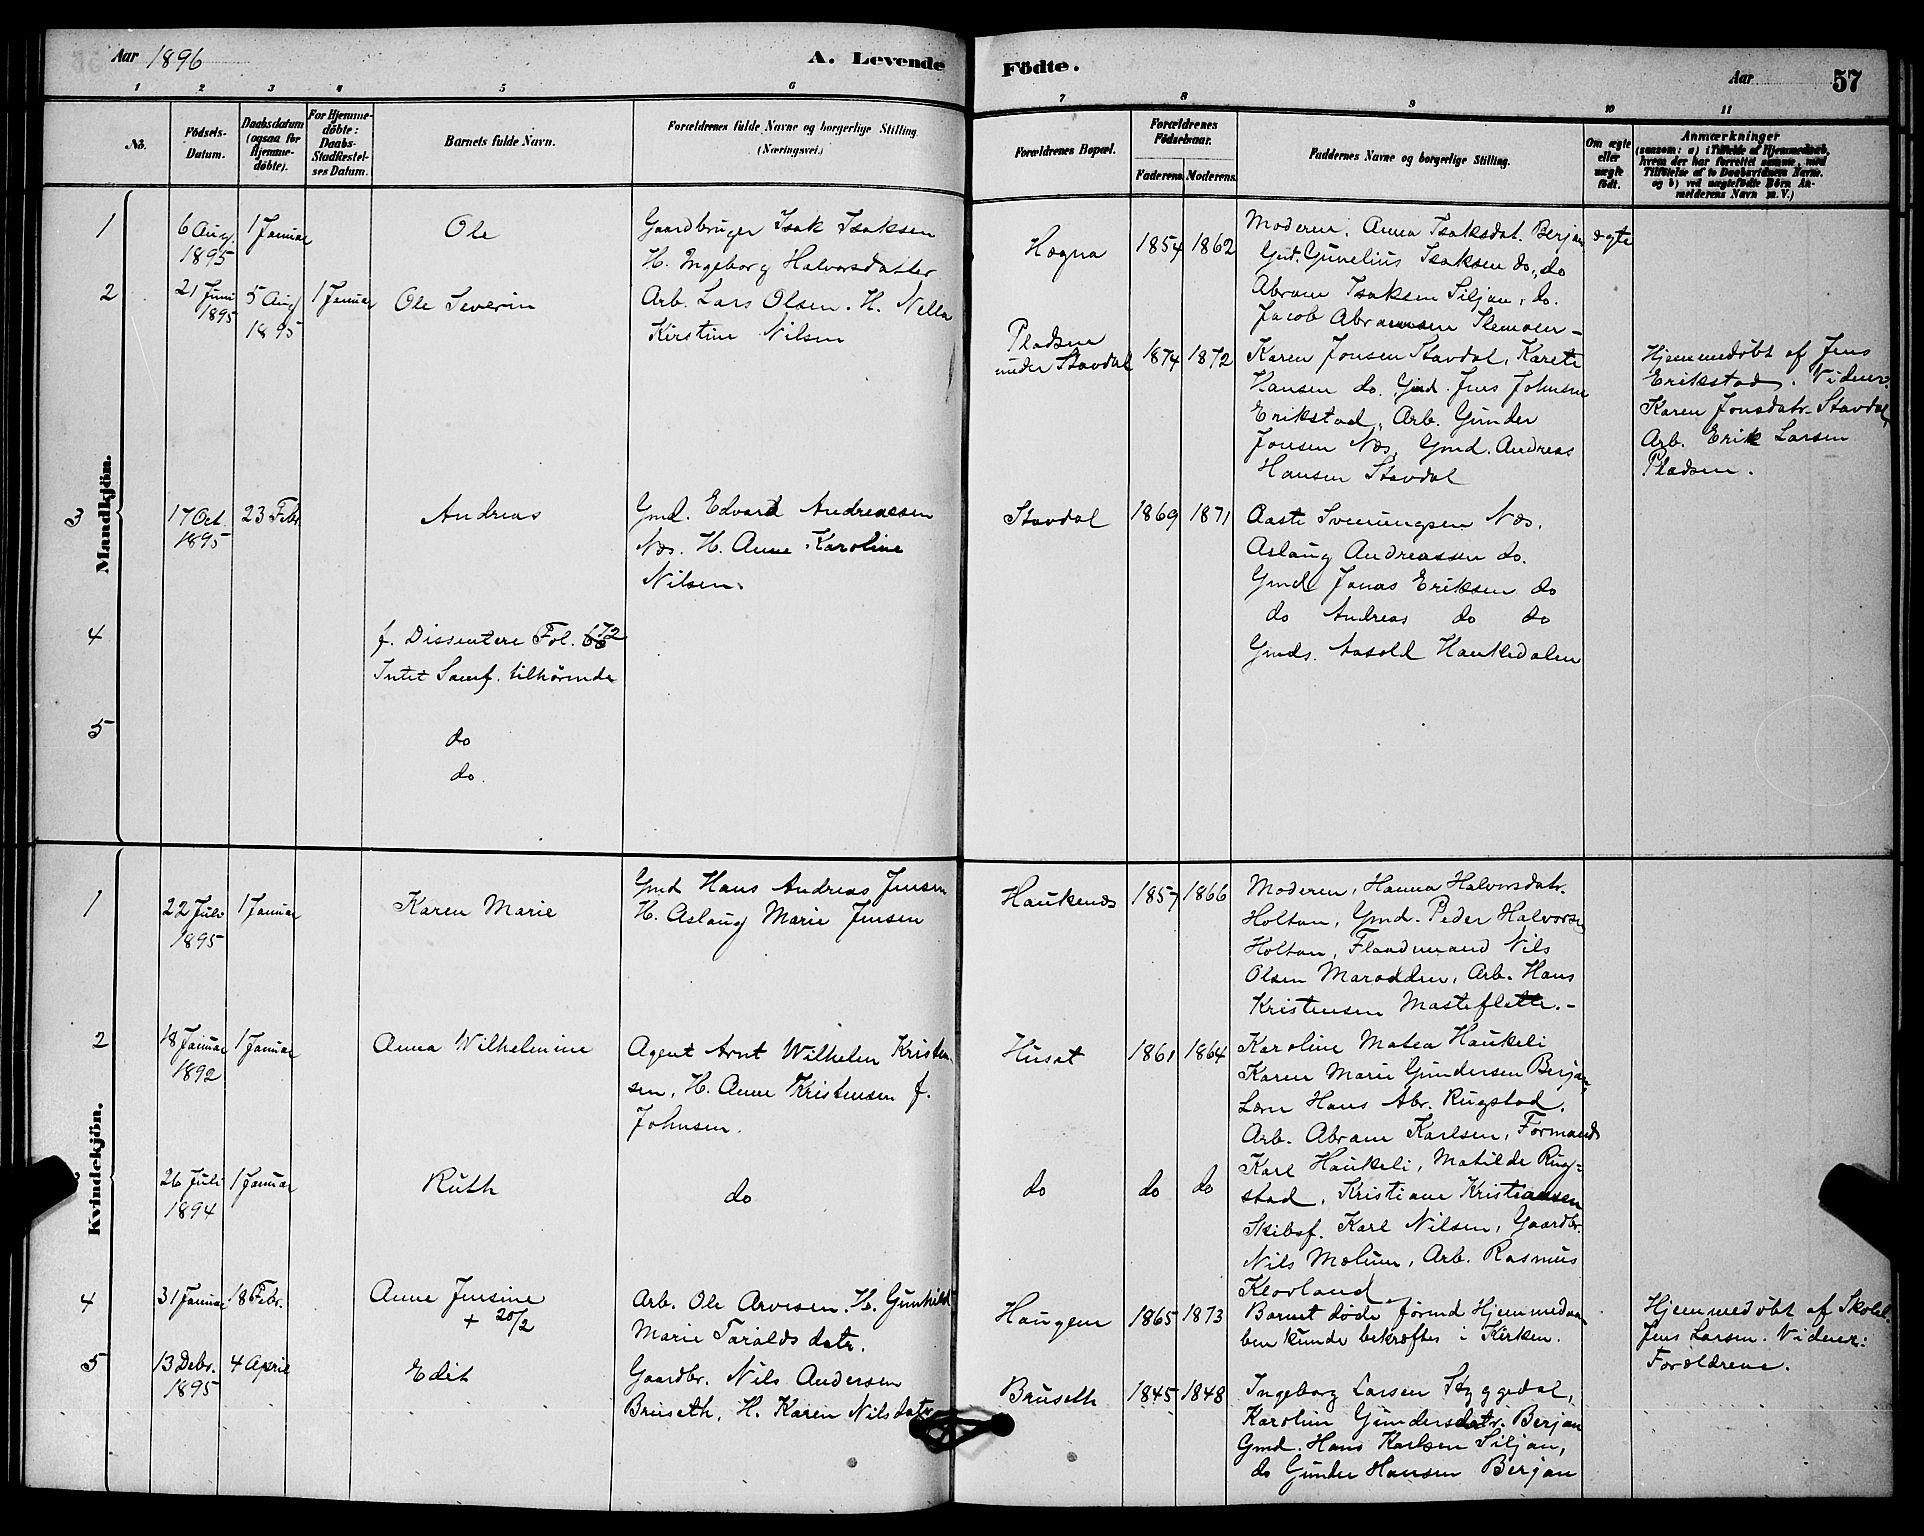 Aar 1896
A. Levende
Födte.
Aar
57
1 2 3 4 5 6 7 8 9 10 11
No.
Födsels-
Datum.
Daabsdatum
(ogsaa for
Hjemme-
döbte).
For Hjemme-
döbte:
Daabs-
Stadfestel-
ses Datum.
Barnets fulde Navn.
Forældrenes fulde Navne og borgerlige Stilling.
(Næringsvei.)
Forældrenes Bopæl.
Forældrenes
Födselsaar.
Faderens. Moderens.
Faddernes Navne og borgerlige Stilling.
Om ægte
eller
uægte
födt.
Anmærkninger
(saasom: a) i Tilfælde af Hjemmedaab,
hvem der har forrettet samme, med
Tilföielse af to Daabsvidners Navne.
og b) ved uægtefödte Börn An-
melderens Navn m. V.)
Mandkjön.
1
6 Aug.
1895
1 Januar
Ole
Gaardbruger Isak Isaksen
H. Ingeborg Halvorsdatter
Hogna
1854
1862
Moderen, Anna Isaksdat. Berjan
Gmd. Gunelius Isaksen do, do
Abram Isaksen Siljan, do.
Jacob Abramsen Slemoen -
ægte
2
21 Juni
1895
5 Aug
1895
1 Januar
Ole Severin
Arb. Lars Olsen. H. Nella
Kirstine Nilsen
Pladsen
under Stavdal
1874
1872
Karen Jonsen Stavdal, Karete
Hansen do. Gmd. Jens Johnsen
Erikstad, Arb. Gunder
Jonsen Næs, Gmd. Andreas
Hansen Stavdal
Hjemmedøbt af Jens
Erikstad. Vidner:
Karen Jonsdatr. Stavdal,
Arb. Erik Larsen
Pladsen.
3
17 Oct.
1895
23 Febr
Andreas
Gmd. Edvard Andreassen
Næs. H. Anne Karoline
Nilsen.
Stavdal
1869
1871
Aaste Sveinungsen Næs.
Aslaug Andreassen do.
Gmd Jonas Eriksen do
do Andreas do do
Gmds. Aasold Haukedalen
4
f. Dissentere Fol. 172
Intet Samf. tilhørende
5
do
do.
Kvindekjön.
1
22 Juli
1895
1 Januar
Karen Marie
Gmd Hans Andreas Jensen
H. Aslaug Marie Jensen
Haukenæs
1857
1866
Moderen, Hanna Halvorsdatr.
Holtan, Gmd. Peder Halvorsen
Holtan, Flaadmand Nils
Olsen Marodden, Arb. Hans
Kristensen Masteflette. -
2
18 Januar
1892
1 Januar
Anna Wilhelmine
Agent Arnt Wilhelm Kristen-
sen, H. Anne Kristensen f.
Johnsen.
Husat
1861
1864
Karoline Matea Haukeli
Karen Marie Gundersen Berjan,
Lærer Hans Abr. Rugstad,
Arb. Abram Karlsen, Formand
26 Juli
1894
1 Januar
Ruth
do
do
do
do
Karl Haukeli, Matilde Rug-
stad, Kristiane Kristiansen
Skibsf. Karl Nilsen, Gaardbr.
Nils Mælum, Arb. Rasmus
Klovland
4
31 Januar
18 Febr.
Anne Jensine
+ 20/2
Arb. Ole Arvesen. H. Gunhild
Marie Taraldsdatr.
Haugene
1865
1873
Barnet døde førend Hjemmedaa-
ben kunde bekræftes i Kirken.
Hjemmedøbt af Skolel.
Jens Larsen. Vidner:
Forældrene.
5
13 Debr.
1895
4 April
Edit
Gaardbr. Nils Andersen
Bruseth, H. Karen Nilsdatr
Bruseth
1845
1848
Ingeborg Larsen Styggedal,
Karoline Gundersdatr. Berjan
Gmd. Hans Karlsen Siljan,
do Gunder Hansen Berjan